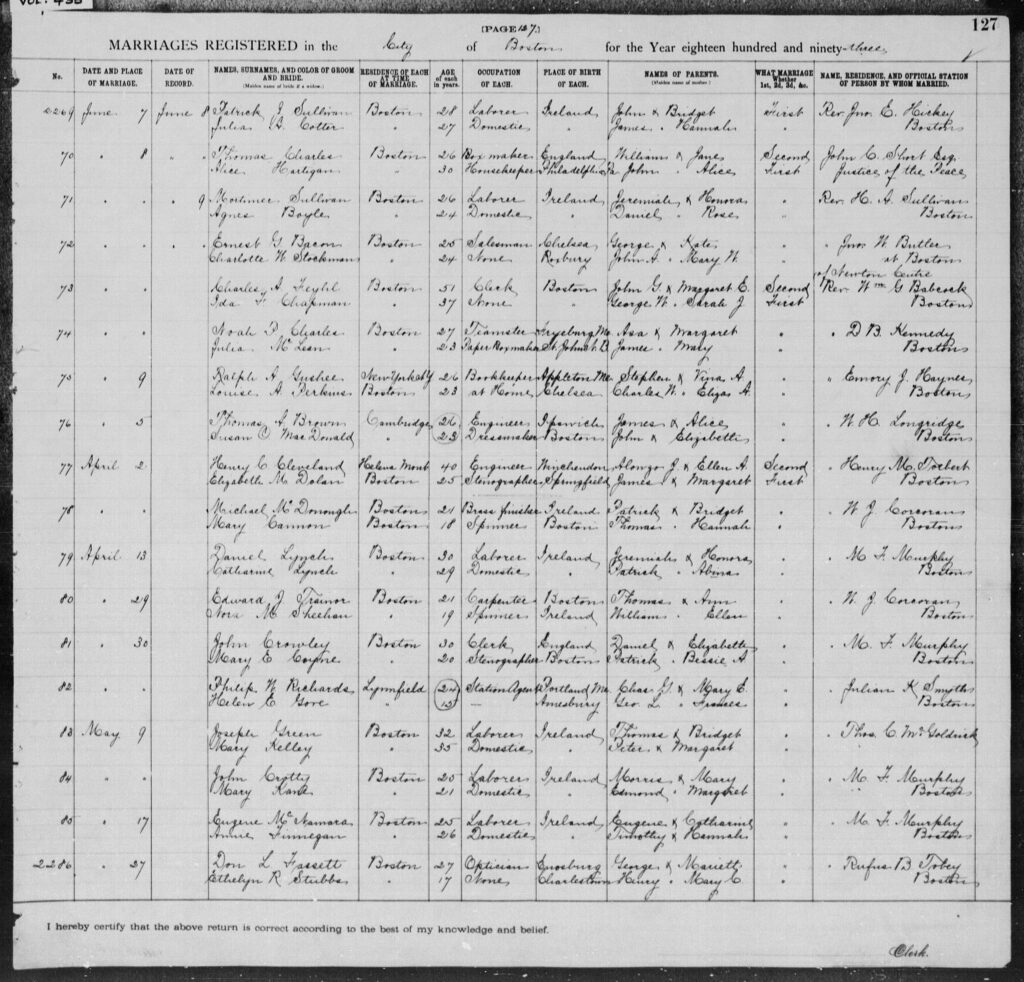 VOL. 435
127
[PAGE 127.]
MARRIAGES REGISTERED in the City of Boston for the Year eighteen hundred and ninety-three
No. DATE AND PLACE OF MARRIAGE. DATE OF RECORD. NAMES, SURNAMES, AND COLOR OF GROOM AND BRIDE. (Maiden name of bride if a widow.) RESIDENCE OF EACH AT TIME OF MARRIAGE. AGE of each in years. OCCUPATION OF EACH. PLACE OF BIRTH OF EACH. NAMES OF PARENTS. (Maiden name of mother.) WHAT MARRIAGE Whether 1st, 2d, 3d, &c. NAME, RESIDENCE, AND OFFICIAL STATION OF PERSON BY WHOM MARRIED.
2269 June 7 June 8 Patrick J Sullivan Boston 28 Laborer Ireland John & Bridget First Rev Jno. E. Hickey
Julia A. Cotter " 27 Domestic " James " Hannah " Boston
70 " 8 " " Thomas Charles Boston 26 Box maker England William & Jane Second John C. Short Esq.
Alice Hartigan " 30 Housekeeper Philadelphia Pa John " Alice First Justice of the Peace
71 " " " 9 Mortimer Sullivan Boston 26 Laborer Ireland Jeremiah & Honora " Rev. H. A. Sullivan
Agnes Boyle " 24 Domestic " Daniel " Rose " Boston
72 " " " " Ernest G. Bacon Boston 25 Salesman Chelsea George & Kate " " Jno. W. Butler
Charlotte W. Stockman " 24 None Roxbury John A. " Mary W " at Boston
of Newton Centre
73 " " Charles A. Feyhl Boston 51 Clerk Boston John G. & Margaret E. Second Rev. Wm G. Babcock
Ida F. Chapman " 37 None " George W. " Sarah J First Boston
74 " " Noah P. Charles Boston 27 Teamster Fryeburg Me. Asa & Margaret " " D. B. Kennedy
Julia McLean " 23 Paper Box maker St. John N. B. James " Mary " Boston
75 " 9 Ralph A. Gushee New York N.Y 26 Bookkeeper Appleton Me. Stephen & Vina A. " " Emory J. Haynes
Louise A. Perkins Boston 23 at Home Chelsea Charles W. " Eliza A. " Boston
76 " 5 Thomas A. Brown Cambridge 26 Engineer Ipswich James & Alice " " W. H. Longridge
Susan Mac Donald " 23 Dressmaker Boston John & Elizabeth " Boston
77 April 2 Henry C. Cleveland Helena Mont 40 Engineer Winchendon Alonzo J. & Ellen A. Second " Henry M. Torbert
Elizabeth M. Dolan Boston 25 Stenographer Springfield James & Margaret First Boston
78 " " Michael McDonough Boston 21 Brass finisher Ireland Patrick & Bridget " " W. J. Corcoran
Mary Cannon Boston 18 Spinner Boston Thomas " Hannah " Boston
79 April 13 Daniel Lynch Boston 30 Laborer Ireland Jeremiah & Honora " " M. F. Murphy
Katharine Lynch " 29 Domestic " Patrick " Abina " Boston
80 " 29 Edward J. Trainor Boston 21 Carpenter Boston Thomas & Ann " " W. J. Corcoran
Nora M. Sheehan " 19 Spinner Ireland William " Ellen " Boston
81 " 30 John Crowley Boston 30 Clerk England Daniel & Elizabeth " " M. F. Murphy
Mary E. Coyne " 20 Stenographer Boston Patrick " Bessie A " Boston
82 " " Philip W. Richards Lynnfield 24 Station Agent Portland Me. Chas. G. & Mary E. " " Julian K. Smyth
Helen C. Gove " — Amesbury Geo. L. " Frances " Boston
83 May 9 Joseph Green Boston 32 Laborer Ireland Thomas & Bridget " " Thos. C. McGoldrick
Mary Kelley " 35 Domestic " Peter & Margaret "
84 " " John Crotty Boston 25 Laborer Ireland Morris & Mary " " M. F. Murphy
Mary Kane " 21 Domestic " Edmond " Margaret " Boston
85 " 17 Eugene McNamara Boston 25 Laborer Ireland Eugene & Catharine " " M. F. Murphy
Annie Finnegan " 26 Domestic " Timothy & Hannah " Boston
2286 " 27 Don L. Fassett Boston 27 Optician Enosburg George & Mariett " " Rufus B. Tobey
Ethelyn R. Stubbs " 17 None Charlestown Henry " Mary C. " Boston
I hereby certify that the above return is correct according to the best of my knowledge and belief.
Clerk.